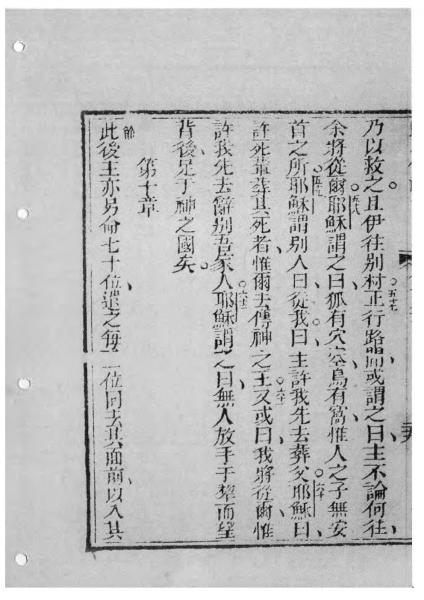 乃以救之且伊往別村止行路間或謂之曰主不論何往
余將從爾耶穌謂之曰狐有穴空鳥有窩惟人之子無安
首之所耶穌謂別人曰從我曰主許我先去葬父耶穌曰
許死輩葬其死者惟爾去傳神之王又或曰我將從爾惟
許我先去辭別吾家人耶穌謂之曰無人放手于犂而望
背後足于神之國矣
第十章
此後主亦另命七十位遣之每二位同去其面前以入其